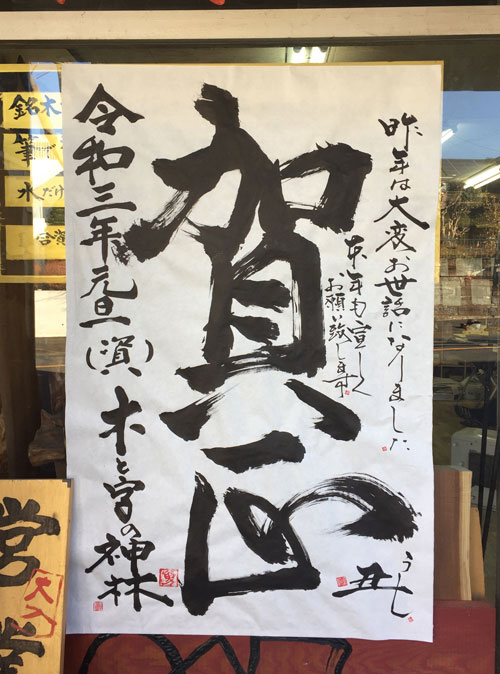 昨年は大変お世話になりました
本年も宜しく
お願い致します
賀正
うし
丑
令和三年元旦(演)
木と字の神林
銘木
筆
水だけ
営業